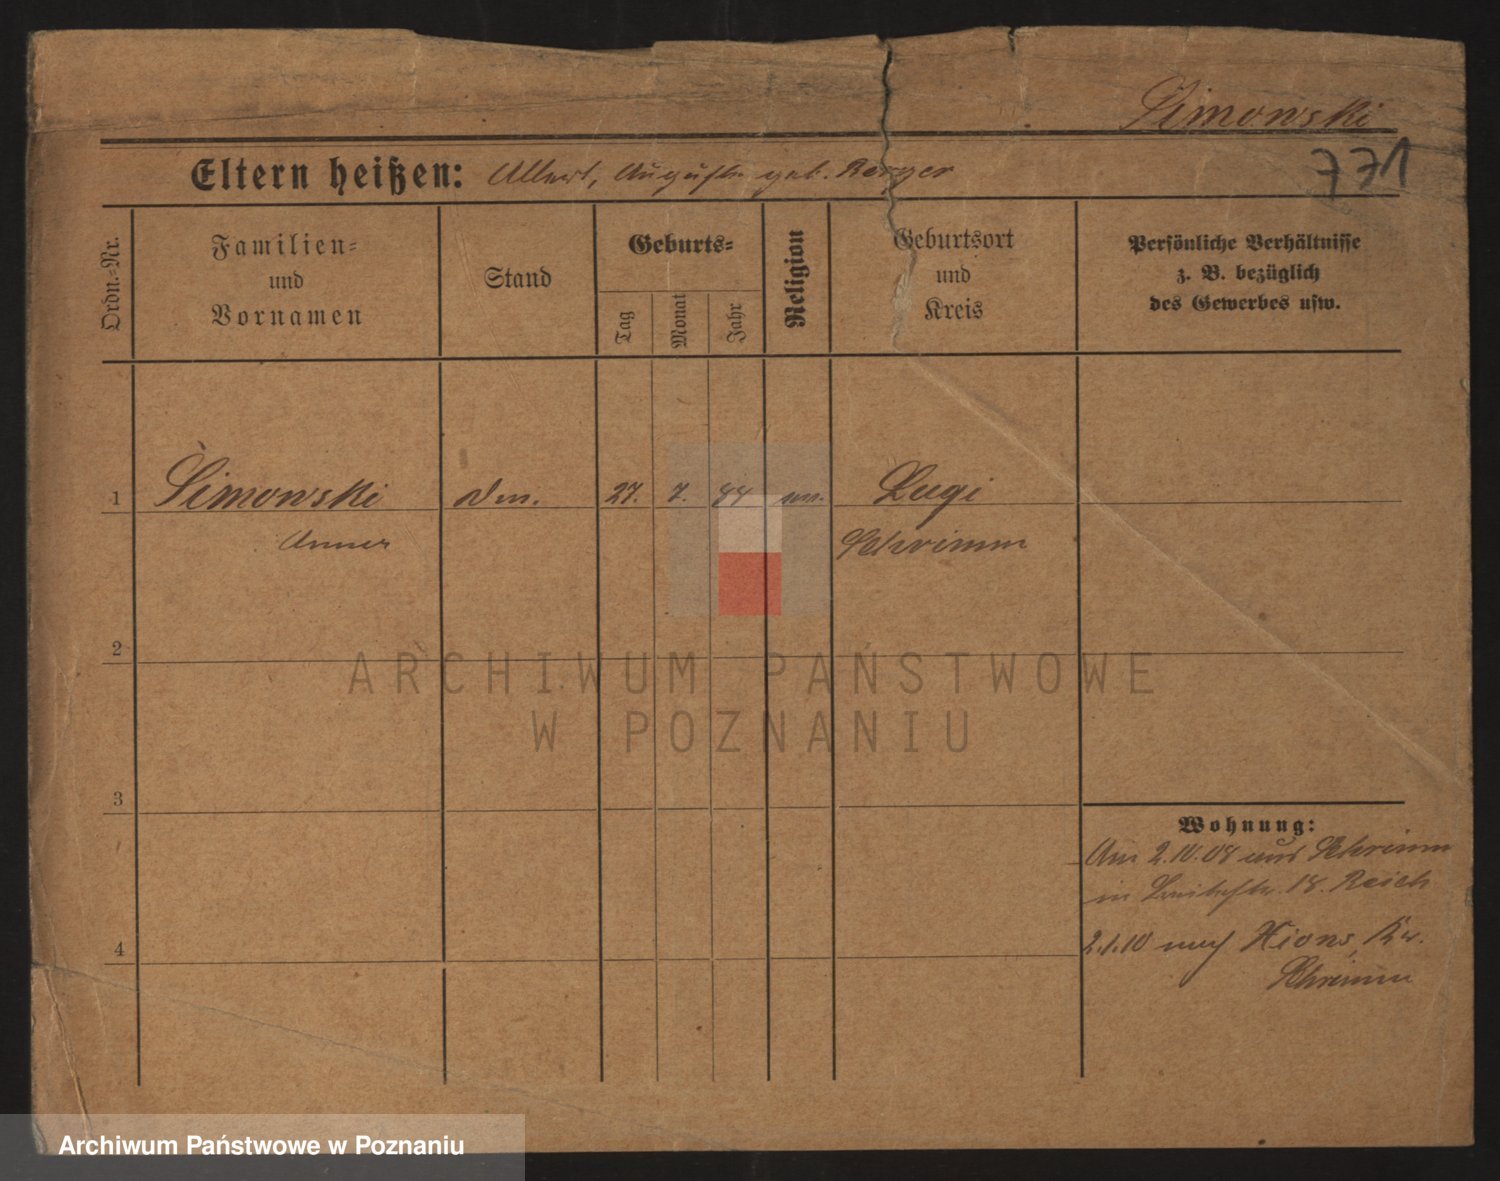 Simowski
771
Eltern heißen: Albert, Auguste geb. Berger
Ordn.-Nr.
Familien-
und
Vornamen
Stand
Geburts-
Tag
Monat
Jahr
Religion
Geburtsort
und
Kreis
Persönliche Verhältnisse
z. B. bezüglich
des Gewerbes usw.
1
Simowski
27. 7. 84
Lugi
Anna
Schrimm
2
ARCHIWUM PAŃSTWOWE
W POZNANIU
3
Wohnung:
Am 2.10.08 aus Schrimm
in 18. Reich
4
2.1.10 nach Xions, Kr.
Schrimm
Archiwum Państwowe w Poznaniu